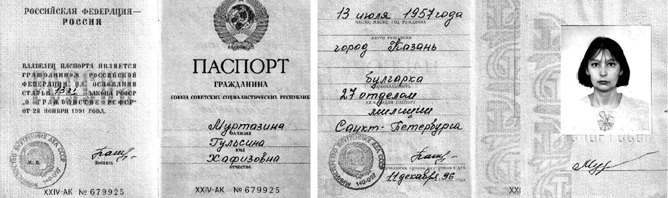 РОССИЙСКАЯ ФЕДЕРАЦИЯ—
РОССИЯ
ВЛАДЕЛЕЦ ПАСПОРТА ЯВЛЯЕТСЯ
ГРАЖДАНИНОМ РОССИЙСКОЙ
ФЕДЕРАЦИИ НА ОСНОВАНИИ
СТАТЬИ ЗАКОНА РСФСР
„О ГРАЖДАНСТВЕ РСФСР"
ОТ 28 НОЯБРЯ 1991 ГОДА.
М. П.
XXIV-АК № 679925
ПАСПОРТ
ГРАЖДАНИНА
СОЮЗА СОВЕТСКИХ СОЦИАЛИСТИЧЕСКИХ РЕСПУБЛИК
Муртазина
фамилия
Гульсина
имя
Хафизовна
отчество
XXIV-АК № 679925
13 июля 1957 года
город Казань
булгарка
27 отделом
милиции
Санкт-Петербурга
11 декабря 96